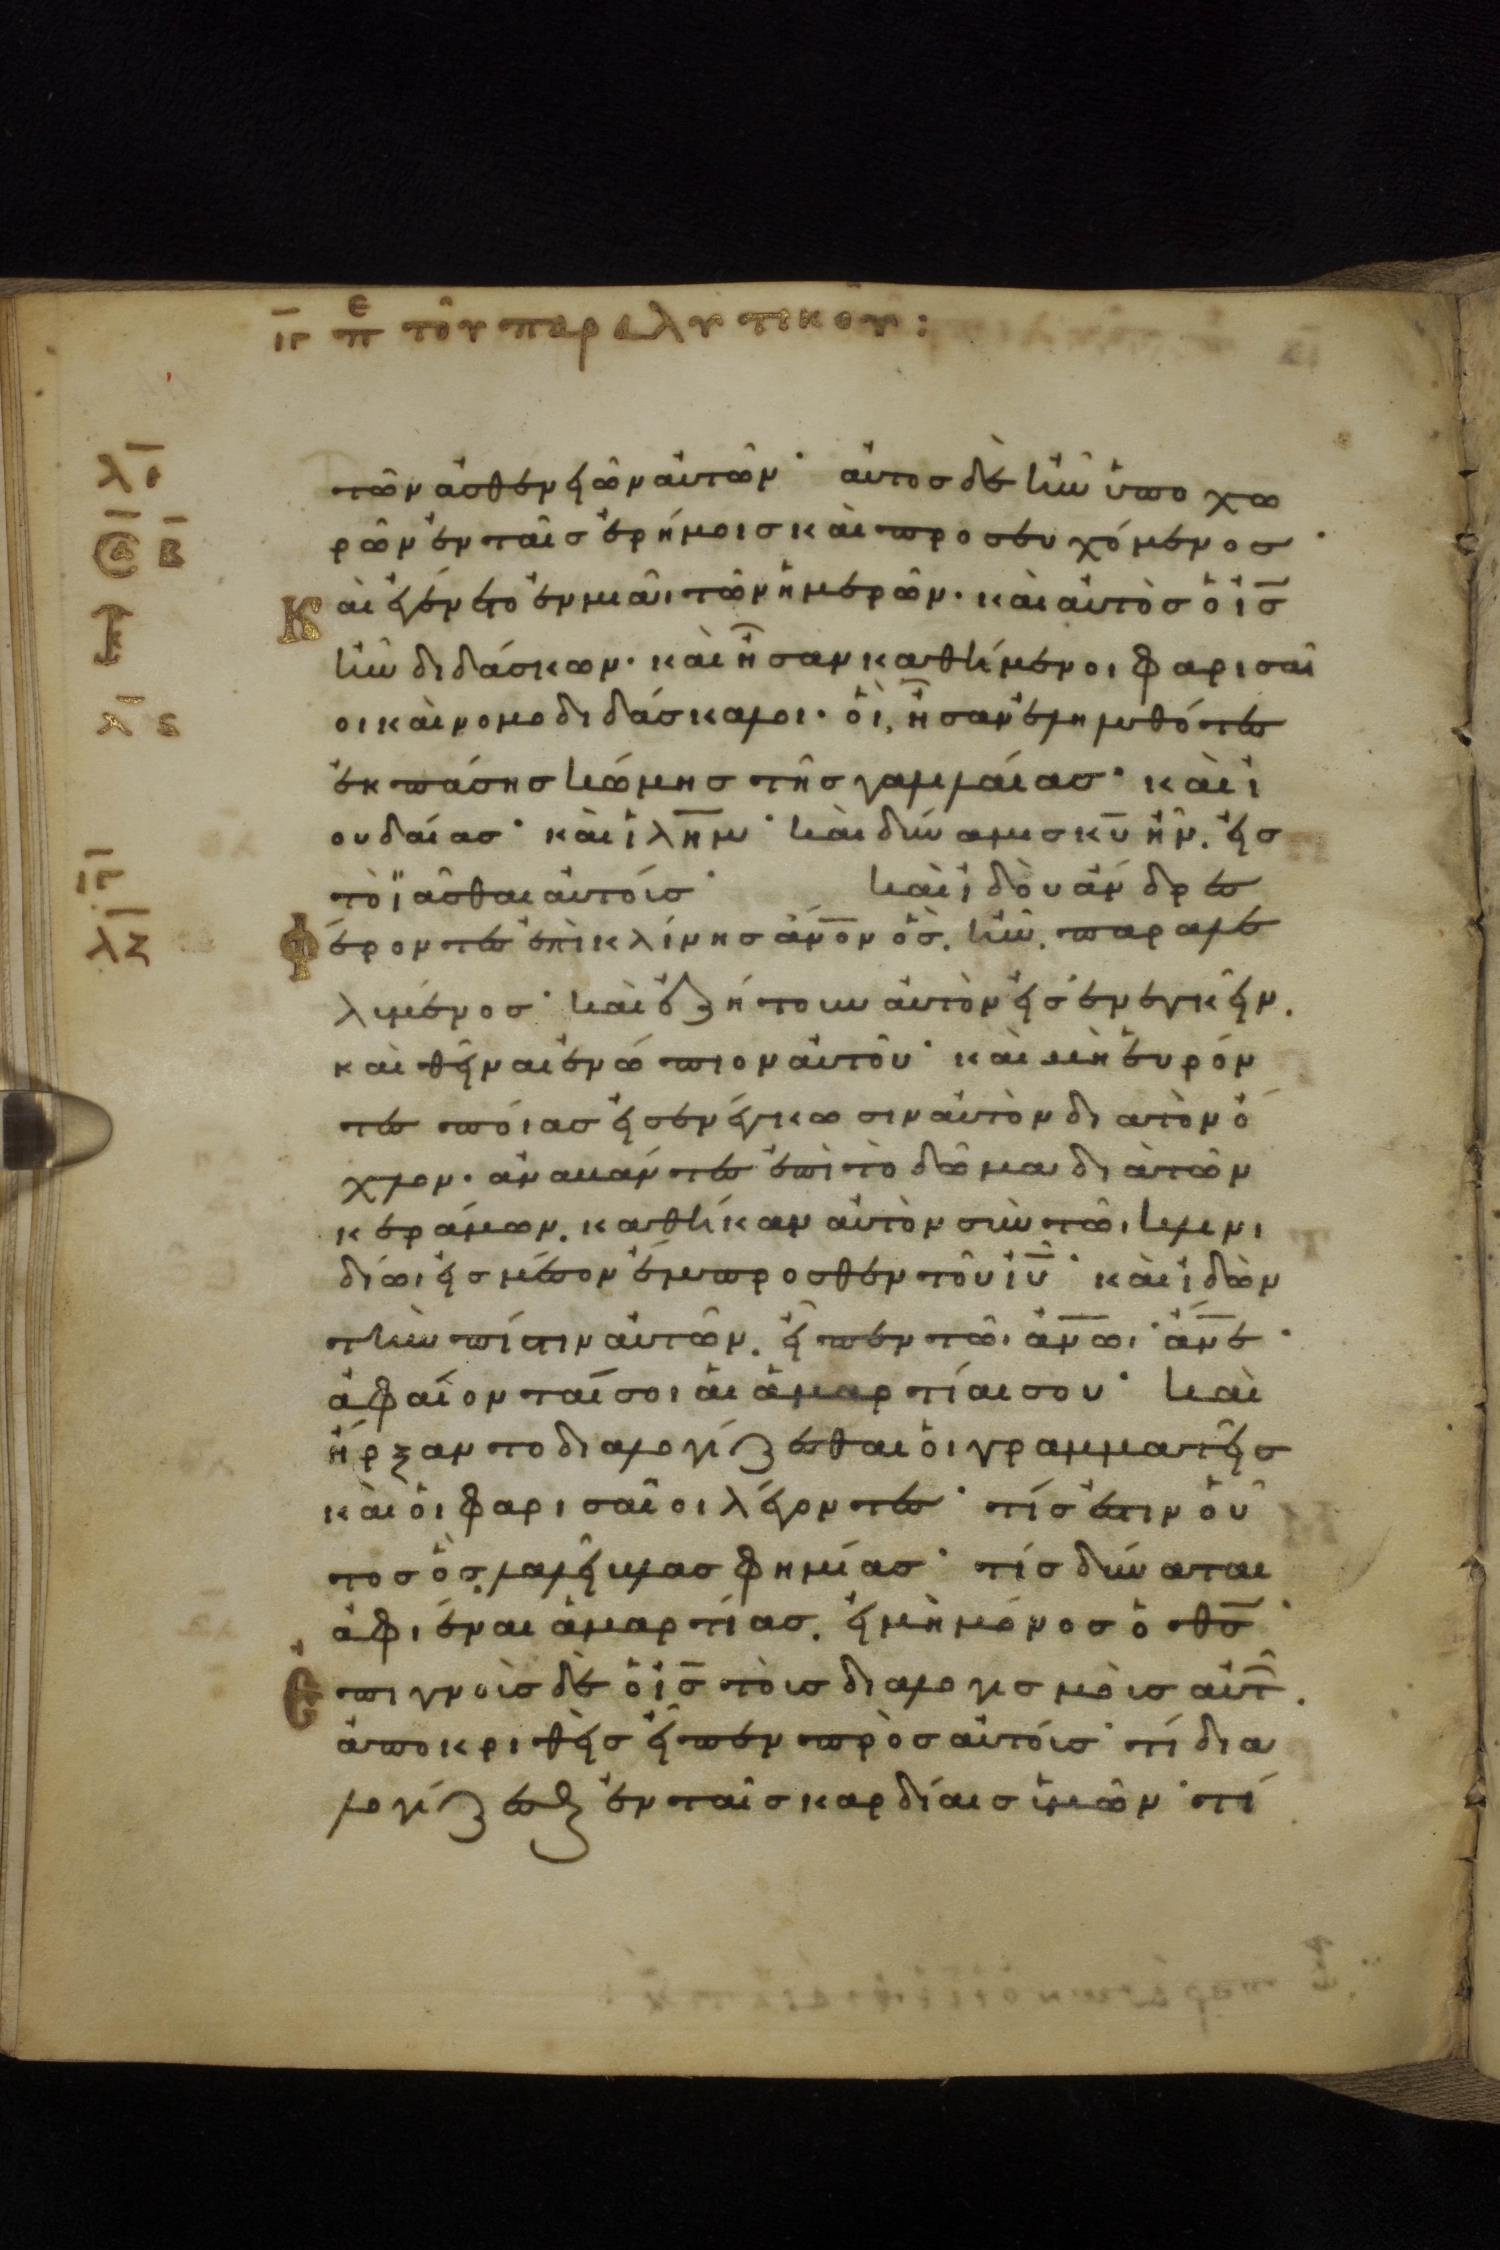 ιγ πε τοῦ παραλυτικοῦ:
τῶν ἀσθενειῶν αὐτῶν· αὐτοσ δὲ ἦν ὑποχω
λε
ρῶν ἐν ταῖσ ἐρήμοισ καὶ προσευχόμενοσ·
β
Καὶ ἐγένετο ἐν μιᾶι τῶν ἡμερῶν· καὶ αὐτὸσ ὁ ἰσ
ἦν διδάσκων· καὶ ἦσαν καθήμενοι φαρισαῖ
λς
οι καὶ νομοδιδάσκαλοι· οἳ, ἦσαν ἐληλυθότεσ
ἐκ πάσησ κώμησ τῆσ γαλιλαίασ· καὶ ἰ
ουδαίασ· καὶ ιλημ· καὶ δύναμισ κυ ἦν. εἰσ
ιγ
τὸ ἰᾶσθαι αὐτούσ· καὶ ἰδοὺ ἄνδρεσ
λζ
Φέροντεσ ἐπὶ κλίνησ ἄνον ὃσ, ἦν, παραλε
λυμένοσ· καὶ ἐζήτουν αὐτὸν εἰσενεγκεῖν.
καὶ θεῖναι ἐνώπιον αὐτοῦ· καὶ μὴ εὑρόν
τεσ ποίασ εἰσενέγκωσιν αὐτὸν διὰ τὸν ὄ
χλον· ἀναβάντεσ ἐπὶ τὸ δῶμα διὰ τῶν
κεράμων. καθῆκαν αὐτὸν σὺν τῶι κλινι
δίωι εἰσ μέσον ἔμπροσθεν τοῦ ιυ· καὶ ἰδὼν
τὴν πίστιν αὐτῶν. εἶπεν τῶι ἀνωι· ἄνε·
ἀφαίονταί σοι αἱ ἁμαρτίαι σου· καὶ
ἤρξαντο διαλογίζεσθαι οἱ γραμματεῖσ
καὶ οἱ φαρισαῖοι λέγοντεσ· τίσ ἐστιν οὗ
τοσ ὃσ, λαλεῖ βλασφημίασ· τίσ δύναται
ἀφιέναι ἁμαρτίασ. εἰ μὴ μόνοσ ὁ θσ·
Ἐπιγνοὺσ δὲ ὁ ισ τοὺσ διαλογισμοὺσ αὐτ.
ἀποκριθεὶσ εἶπεν πρὸσ αὐτούσ· τί δια
λογίζεσθε ἐν ταῖσ καρδίαισ ὑμῶν· τί